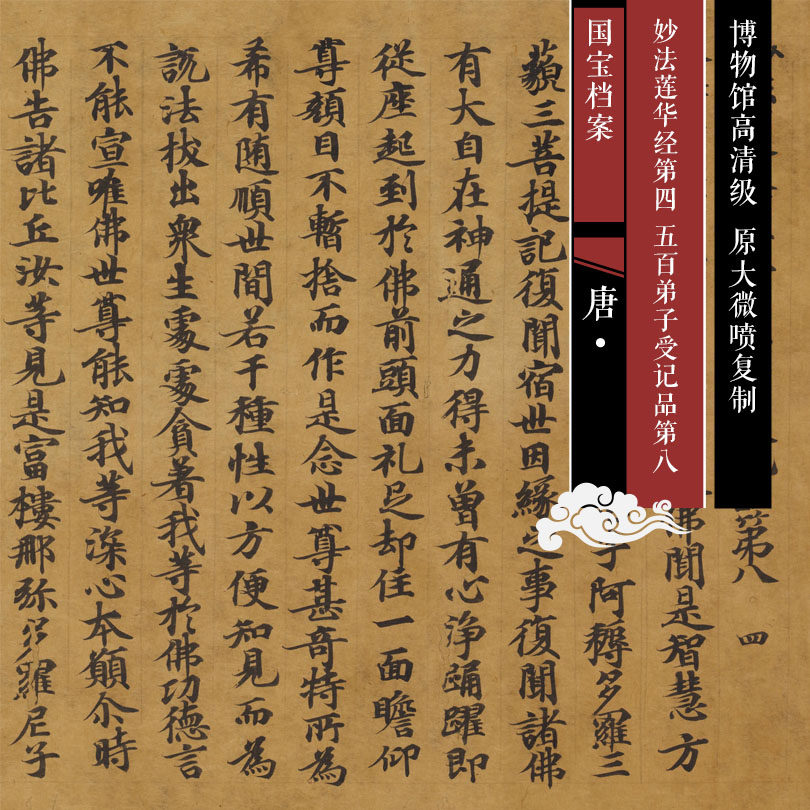 博物馆高清级 原大微喷复制
妙法莲华经第四 五百弟子受记品第八
国宝档案
唐·
第八 四
佛聞是智慧方
阿耨多羅三
藐三菩提記復聞宿世因緣之事復聞諸佛
有大自在神通之力得未曾有心浄踊躍即
從座起到於佛前頭面礼足却住一面瞻仰
尊顏目不暫捨而作是念世尊甚奇特所為
希有随順世間若干種性以方便知見而為
說法拔出衆生處處貪著我等於佛功德言
不能宣唯佛世尊能知我等深心本願尒時
佛告諸比丘汝等見是富樓那弥多羅尼子